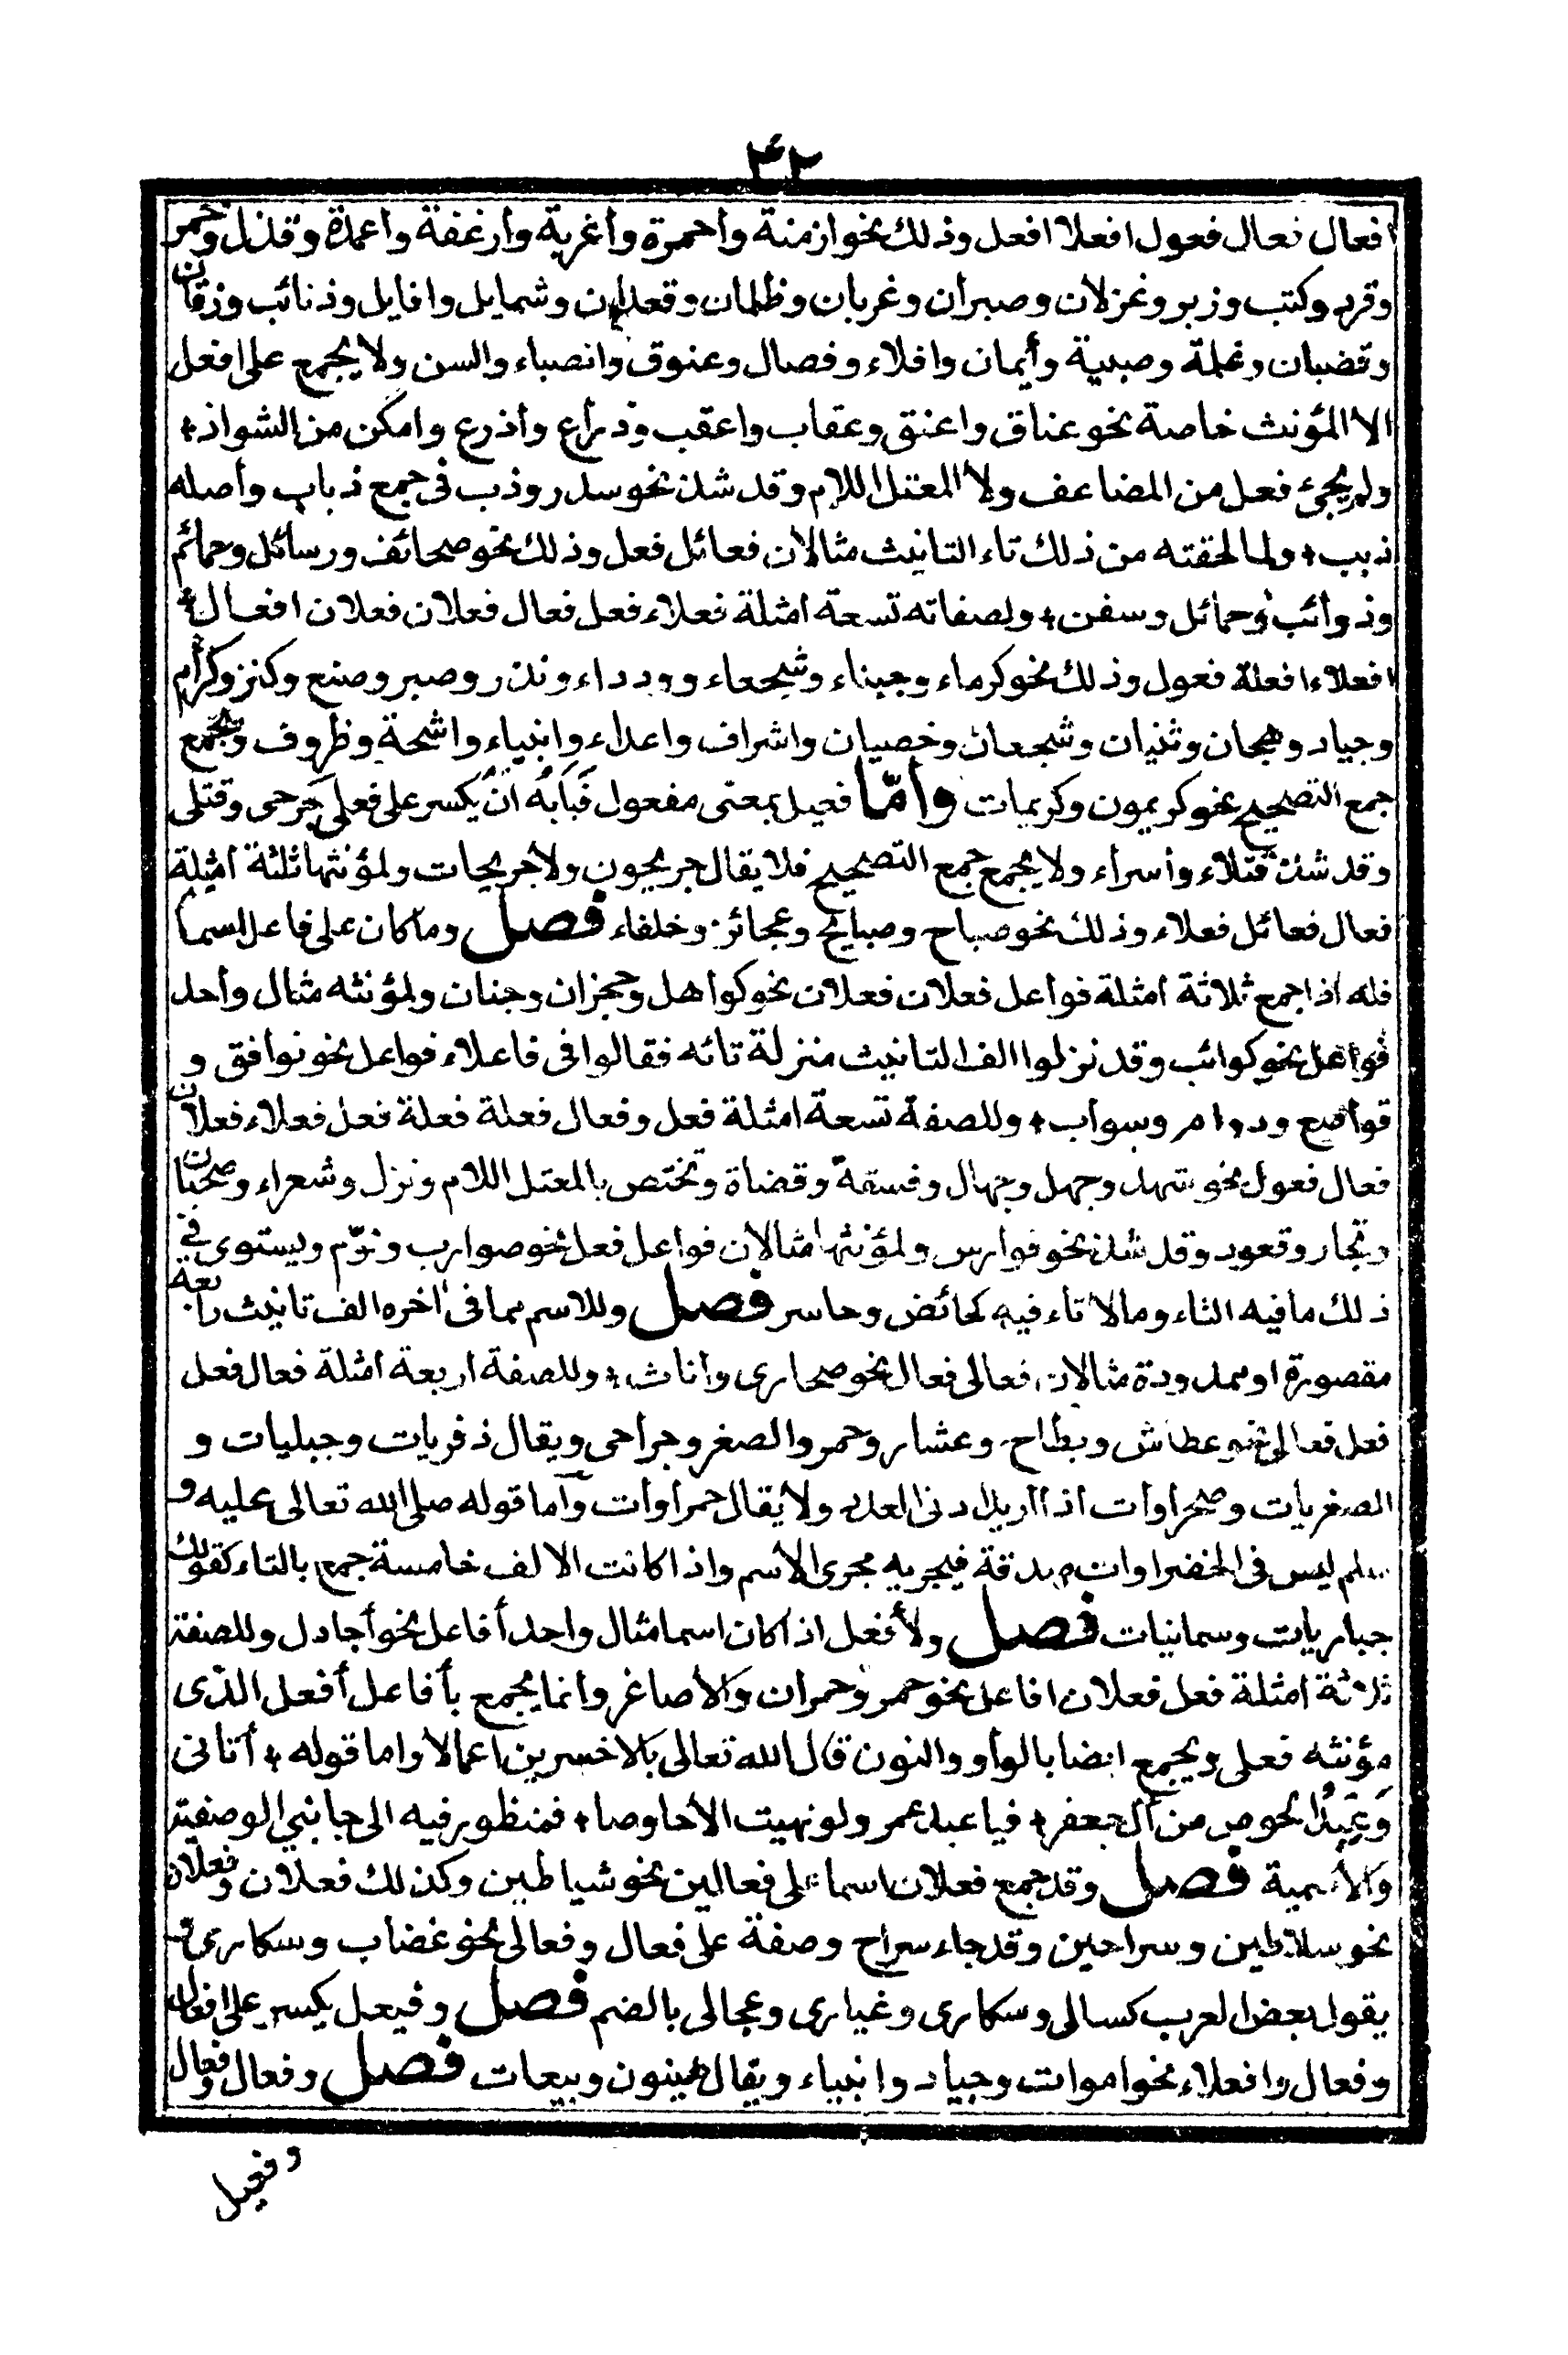 ٤٢
افعال فعال فعول افعلا افعل وذلك نحو ازمنة وأحمرة وأغربة وأرغفة وأعمدة وقذل وحمر
وقرد وكتب وزبر وغزلان وصبران وغربان وظلمان وقعدان وشمايل وافايل وذنائب وزقان
وقضبان وغلمة وصبية وأيمان وافلاء وفصال وعنوق وانصباء والسن ولا يجمع على افعل
الا المؤنث خاصة نحو عناق واعنق وعقاب واعقب وذراع وأذرع وامكن من الشواذ
ولم يجئ فعل من المضاعف ولا المعتل اللام وقد شذ نحو سدر وذب في جمع ذباب وأصله
ذبب ولما لحقته من ذلك تاء التانيث مثالان فعائل فعل وذلك نحو صحائف ورسائل وحمائم
وذوائب وحمائل وسفن ولصفاته تسعة امثلة فعلاء فعل فعال فعلان فعلان افعال
افعلاء افعلة فعول وذلك نحو كرماء وجبناء وشجعاء وودداء ونذر وصبر وصنع وكنز وكرام
وجياد وهجان وثنيان وشجعان وخصيان واشراف واعداء وانبياء واشحة وظروف ويجمع
جمع التصحيح نحو كريمون وكريمات وأمّا فعيل بمعنى مفعول فَبَابُه انْ يُكسر على فعلى كجرحى وقتلى
وقد شذ قتلاء وأسراء ولا يجمع جمع التصحيح فلا يقال جريحون ولا جريحات ولمؤنثها ثلثة امثلة
فعال فعائل فعلاء وذلك نحو صباح وصبايح وعجائز وخلفاء فصل وما كان على فاعل اسما
فله اذا جمع ثلاثة امثلة فواعل فعلان فعلان نحو كواهل وحجزان وجنان ولمؤنثه مثال واحد
فواعل نحو كواثب وقد نزلوا الف التانيث منزلة تائه فقالوا في فاعلاء فواعل نحو نوافق و
قواصع ودوام وسواب وللصفة تسعة امثلة فعل وفعال فعلة فعلة فعل فعلاء فعلان
فعال فعول نحو شهد وجهل وجهال وفسقة وقضاة وتختص بالمعتل اللام ونزل وشعراء وصحبان
وتجار وقعود وقد شذ نحو فوارس ولمؤنثها مثالان فواعل فعل نحو صوارب ونوّم ويستوى في
ذلك ما فيه التاء وما لا تاء فيه كحائض وحاسر فصل وللاسم مما فى اخره الف تانيث رابعة
مقصورة او ممدودة مثالان فعالى فعال نحو صحارى واناث وللصفة اربعة امثلة فعال فعل
فعل فعالى نحو عطاش وبطاح وعشار وحمر والصغر وجراحى ويقال ذفريات وجبليات و
الصغريات وصحراوات اذا اريد ادنى العدد ولا يقال حمراوات وأما قوله صلى الله تعالى عليه و
سلم ليس فى الخضراوات صدقة فيجريه مجرى الاسم واذا كانت الالف خامسة جمع بالتاء كقولك
حباريات وسمانيات فصل ولأفعل اذا كان اسما مثال واحد أفاعل نحو أجادل وللصفة
ثلاثة امثلة فعل فعلان افاعل نحو حمر وحمران والأصاغر وانما يجمع بأفاعل أفعل الذى
مؤنثه فعلى ويجمع ايضا بالواو والنون قال الله تعالى بالاخسرين اعمالا واما قوله أتانى
وَعِيدُ الحوص من آل جعفر فيا عبد عمر ولو نهيت الأحاوصا فمنظور فيه الى جانبي الوصفية
والاسمية فصل وقد جمع فعلان اسما على فعالين نحو شياطين وكذلك فعلان وفعلان
نحو سلاطين وسراحين وقد جاء سراح وصفة على فعال وفعالى نحو غضاب وسكارى و
يقول بعض العرب كسالى وسكارى وغيارى وعجالى بالضم فصل وفيعل يكسر على افعال
وفعال وافعلاء نحو اموات وجياد وانبياء ويقال هينون وبيعات فصل وفعال وفعال
وفعيل